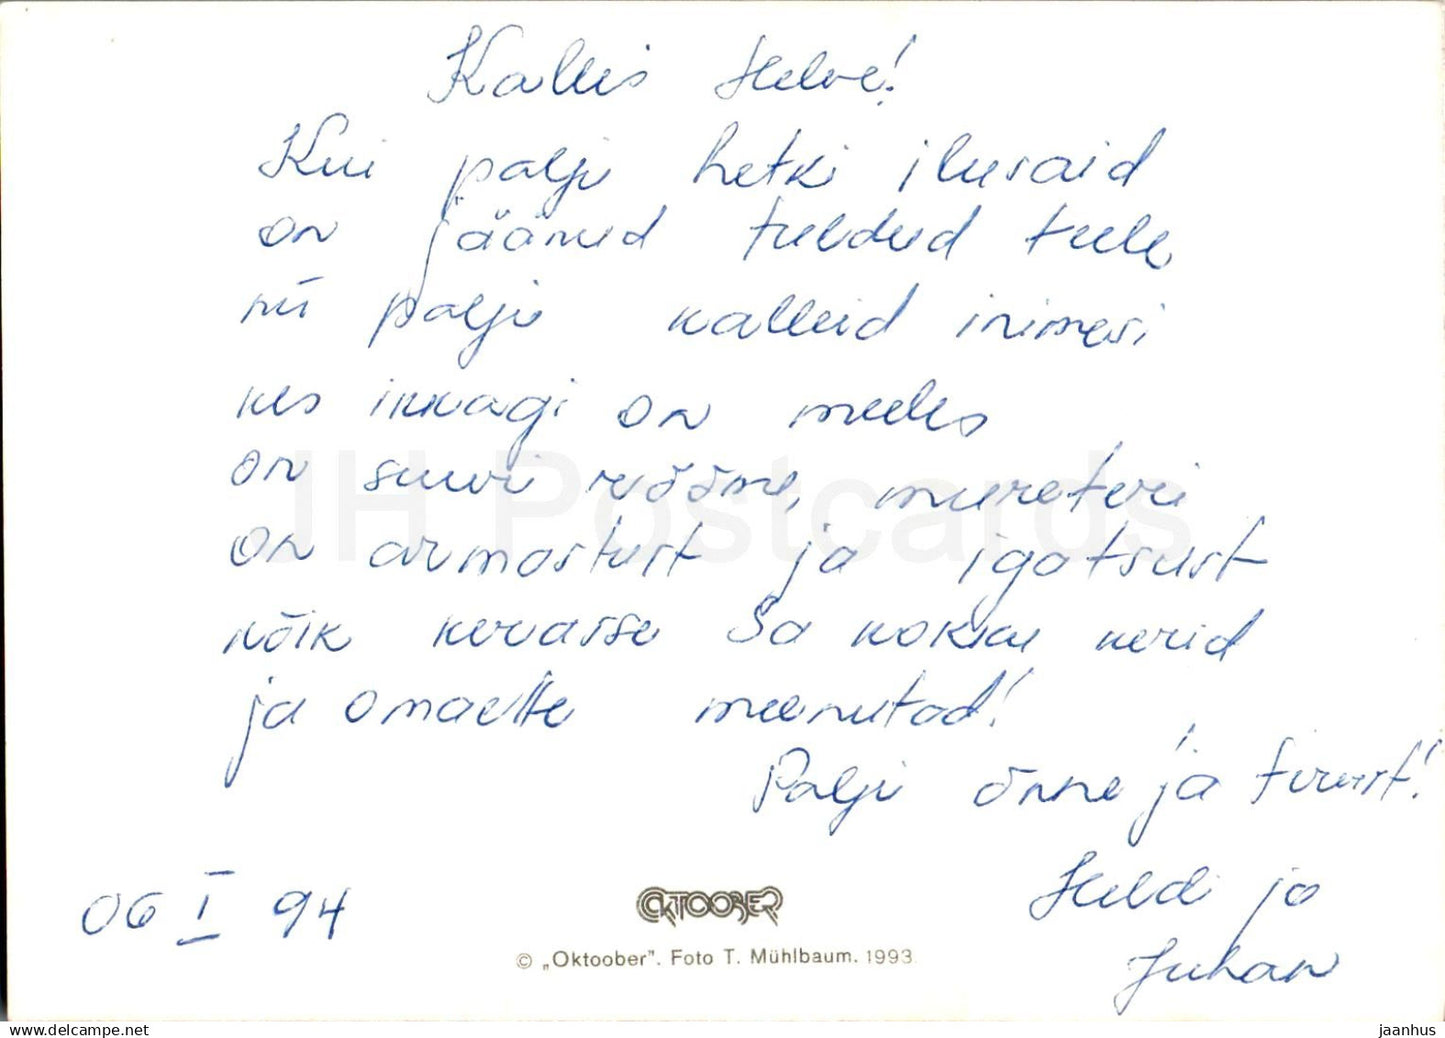 Kallis Helve!
Kui palju hetki ilusaid
on jäänud tuldud teele
nii palju kalleid inimesi
kes ikkagi on meeles
on suuri rõõme, muretsi
on armastust ja igatsust
kõik kevasse Sa kokku kerid
ja omaette meenutad!
Palju õnne ja tervist!
Heldi ja
Juhan
06 I 94
OKTOOBER
© „Oktoober". Foto T. Mühlbaum. 1993.
JH Postcards
delcampe.net
jaanhus